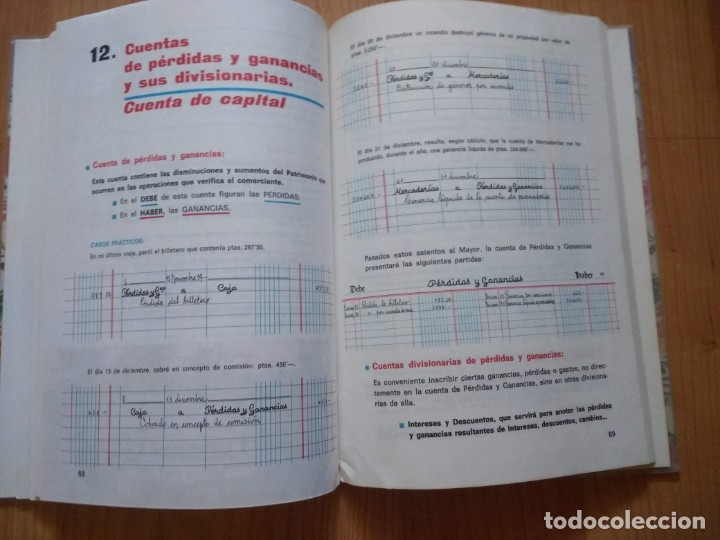 12. Cuentas
de pérdidas y ganancias
y sus divisionarias.
Cuenta de capital
Cuenta de pérdidas y ganancias:
Esta cuenta contiene las disminuciones y aumentos del Patrimonio que
ocurren en las operaciones que verifica el comerciante.
En el DEBE de esta cuenta figuran las PÉRDIDAS.
En el HABER, las GANANCIAS.
CASOS PRACTICOS:
En mi último viaje, perdí el billetero que contenía ptas. 287'50.
Pérdidas y Gª a Caja
Pérdida del billetero
El día 13 de diciembre, cobré en concepto de comisión: ptas. 456'—.
13 diciembre
Caja a Pérdidas y Ganancias
Cobrado en concepto de comisión
68
El día 20 de diciembre un incendio destruyó géneros de mi propiedad por valor de
ptas. 3.250'—.
20 diciembre
Pérdidas y Gª a Mercaderías
Destrucción de géneros por incendio
El día 31 de diciembre, resulta, según cálculo, que la cuenta de Mercaderías me ha
producido, durante el año, una ganancia líquida de ptas.
31 diciembre
Mercaderías a Pérdidas y Ganancias
Ganancia líquida de la cuenta de mercaderías
Pasados estos asientos al Mayor, la cuenta de Pérdidas y Ganancias
presentará las siguientes partidas:
Debe Pérdidas y Ganancias Haber
Pérdida de billetero
Cuentas divisionarias de pérdidas y ganancias:
Es conveniente inscribir ciertas ganancias, pérdidas o gastos, no direc-
tamente en la cuenta de Pérdidas y Ganancias, sino en otras divisiona-
rias de ella.
Intereses y Descuentos, que servirá para anotar las pérdidas
y ganancias resultantes de intereses, descuentos, cambios...
69
todocoleccion